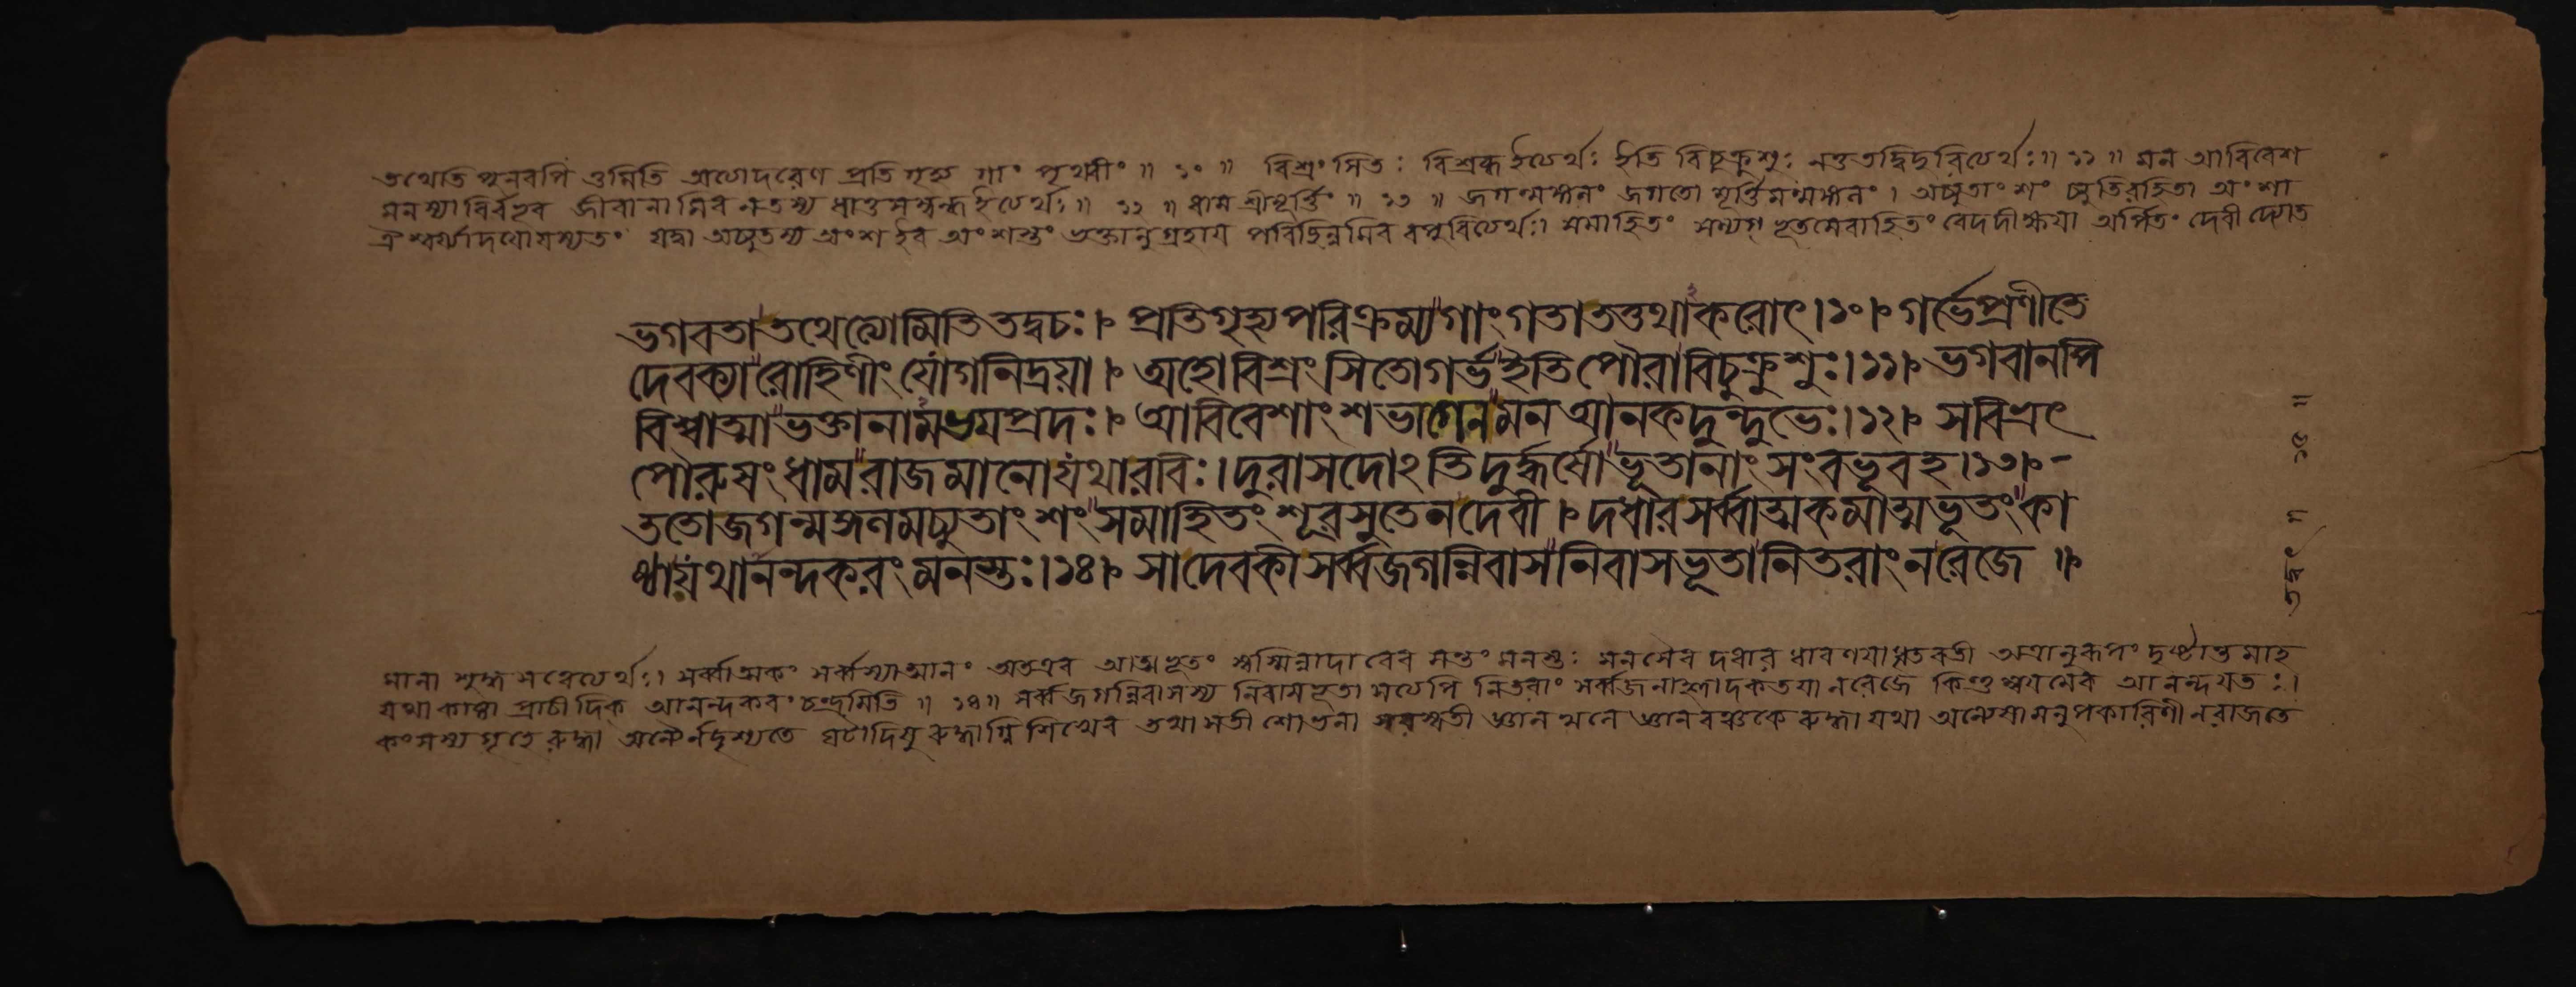 তথেতি পুনরপি ওমিতি অত্যাদরেণ প্রতিগৃহ্য গাং পৃথ্বীং ॥ ১০ ॥ বিশ্রংসিতঃ ইত্যর্থঃ ইতি বিচুক্রুশুঃ নতুতদ্বিদুরিত্যর্থঃ॥ ১১ ॥ মন আবিবেশ
মনস্যাবির্বভূব জীবানামিব নতস্য ধাতুসম্বন্ধ ইত্যর্থঃ॥ ১২ ॥ ধাম শ্রীমূর্ত্তিং ॥ ১৩ ॥ জগন্মঙ্গলং জগতো মূর্ত্তিমন্মঙ্গলং । অচ্যুতাংশং চ্যুতিরহিতা অংশা
ঐশ্বর্য্যাদয়োযস্যতং যদ্বা অচ্যুতস্য অংশ ইব অংশস্তং ভক্তানুগ্রহায় পরিছিন্নমিব বপুরিত্যর্থঃ। সমাহিতং সম্যগ্ভূতমেবাহিতং বেদদীক্ষয়া অর্পিতং দেবী দ্যোত
ভগবতাতথেত্যোমিতিতদ্বচঃ।৹ প্রতিগৃহ্যপরিক্রম্যগাংগতাতত্তথাকরোৎ।১০।৹ গর্ভেপ্রণীতে
দেবক্যারোহিণীংযোগনিদ্রয়া।৹ অহোবিশ্রংসিতোগর্ভইতিপৌরাবিচুক্রুশুঃ।১১।৹ ভগবানপি
বিশ্বাত্মাভক্তানামভয়প্রদঃ।৹ আবিবেশাংশভাগেনমনআনকদুন্দুভেঃ।১২।৹ সবিভ্রৎ
পৌরুষংধামরাজমানোযথারবিঃ।দুরাসদোঽতিদুর্দ্ধর্ষোভূতানাংসংবভূবহ।১৩।৹-
ততোজগন্মঙ্গলমচ্যুতাংশংসমাহিতংশূরসুতেনদেবী।৹ দধারসর্ব্বাত্মকমাত্মভূতংকা
ষ্ঠাযথানন্দকরংমনস্তঃ।১৪।৹ সাদেবকীসর্ব্বজগন্নিবাসনিবাসভূতানিতরাংনরেজে ॥৹
মানা শুদ্ধসত্বেত্যর্থঃ। সর্ব্বাত্মকং সর্ব্বস্যাত্মানং অতএব আত্মভূতং স্বস্মিন্নাদাবেব সন্তং মনস্তঃ মনসৈব দধার ধারণয়াধৃতবতী অত্রানুরূপং দৃষ্টান্তমাহ
যথা কাষ্ঠা প্রাচী দিক্ আনন্দকরং চন্দ্রমিতি ॥ ১৪ ॥ সর্ব্বজগন্নিবাসস্য নিবাসভূতা সত্যপি নিতরাং সর্ব্বজনাহ্লাদকতয়া নরেজে কিন্তু স্বয়মেব আনন্দয়ত ঃ।
কংসস্য গৃহে রুদ্ধা অন্যৈর্নদৃশ্যতে ঘটাদিষু রুদ্ধাগ্নিশিখেব তথা সতী শোভনা সরস্বতী জ্ঞানখলে জ্ঞানবঞ্চকে রুদ্ধা যথা অন্যেষামনুপকারিণী নরাজতে